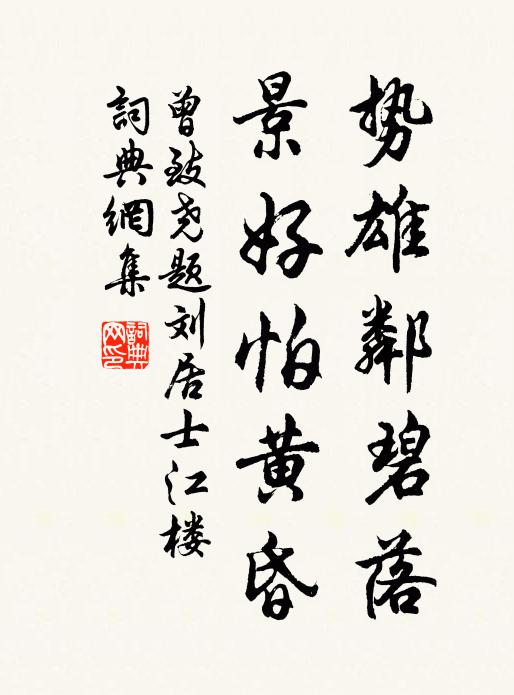 势雄鄰碧落
景好怕黄昏
曾致尧题刘居士江楼
詞典網集
詞典
网印